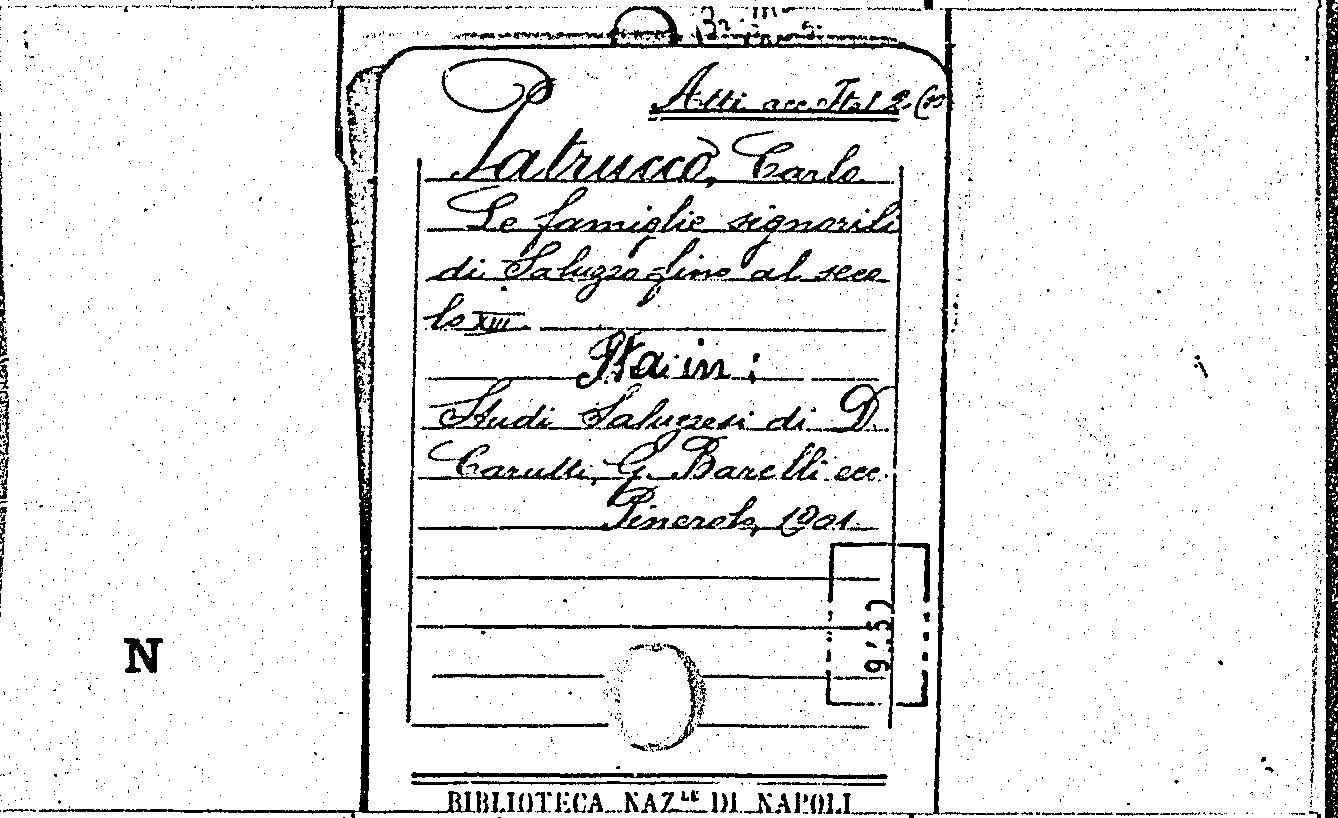 Atti acc. Ital 2
Patrucco, Carlo
Le famiglie signorili
di Saluzzo fino al seco
lo XIII.
Sta in:
Studi Saluzzesi di D.
Carutti, G. Barelli ecc.
Pinerolo, 1901
N
BIBLIOTECA NAZ.LE DI NAPOLI